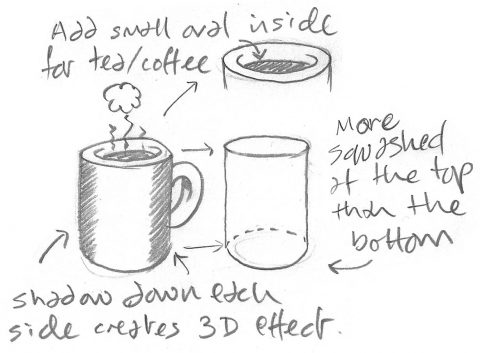 Add small oval inside
for tea/coffee
More
squashed
at the top
than the
bottom
shadow down each
side creates 3D effect.